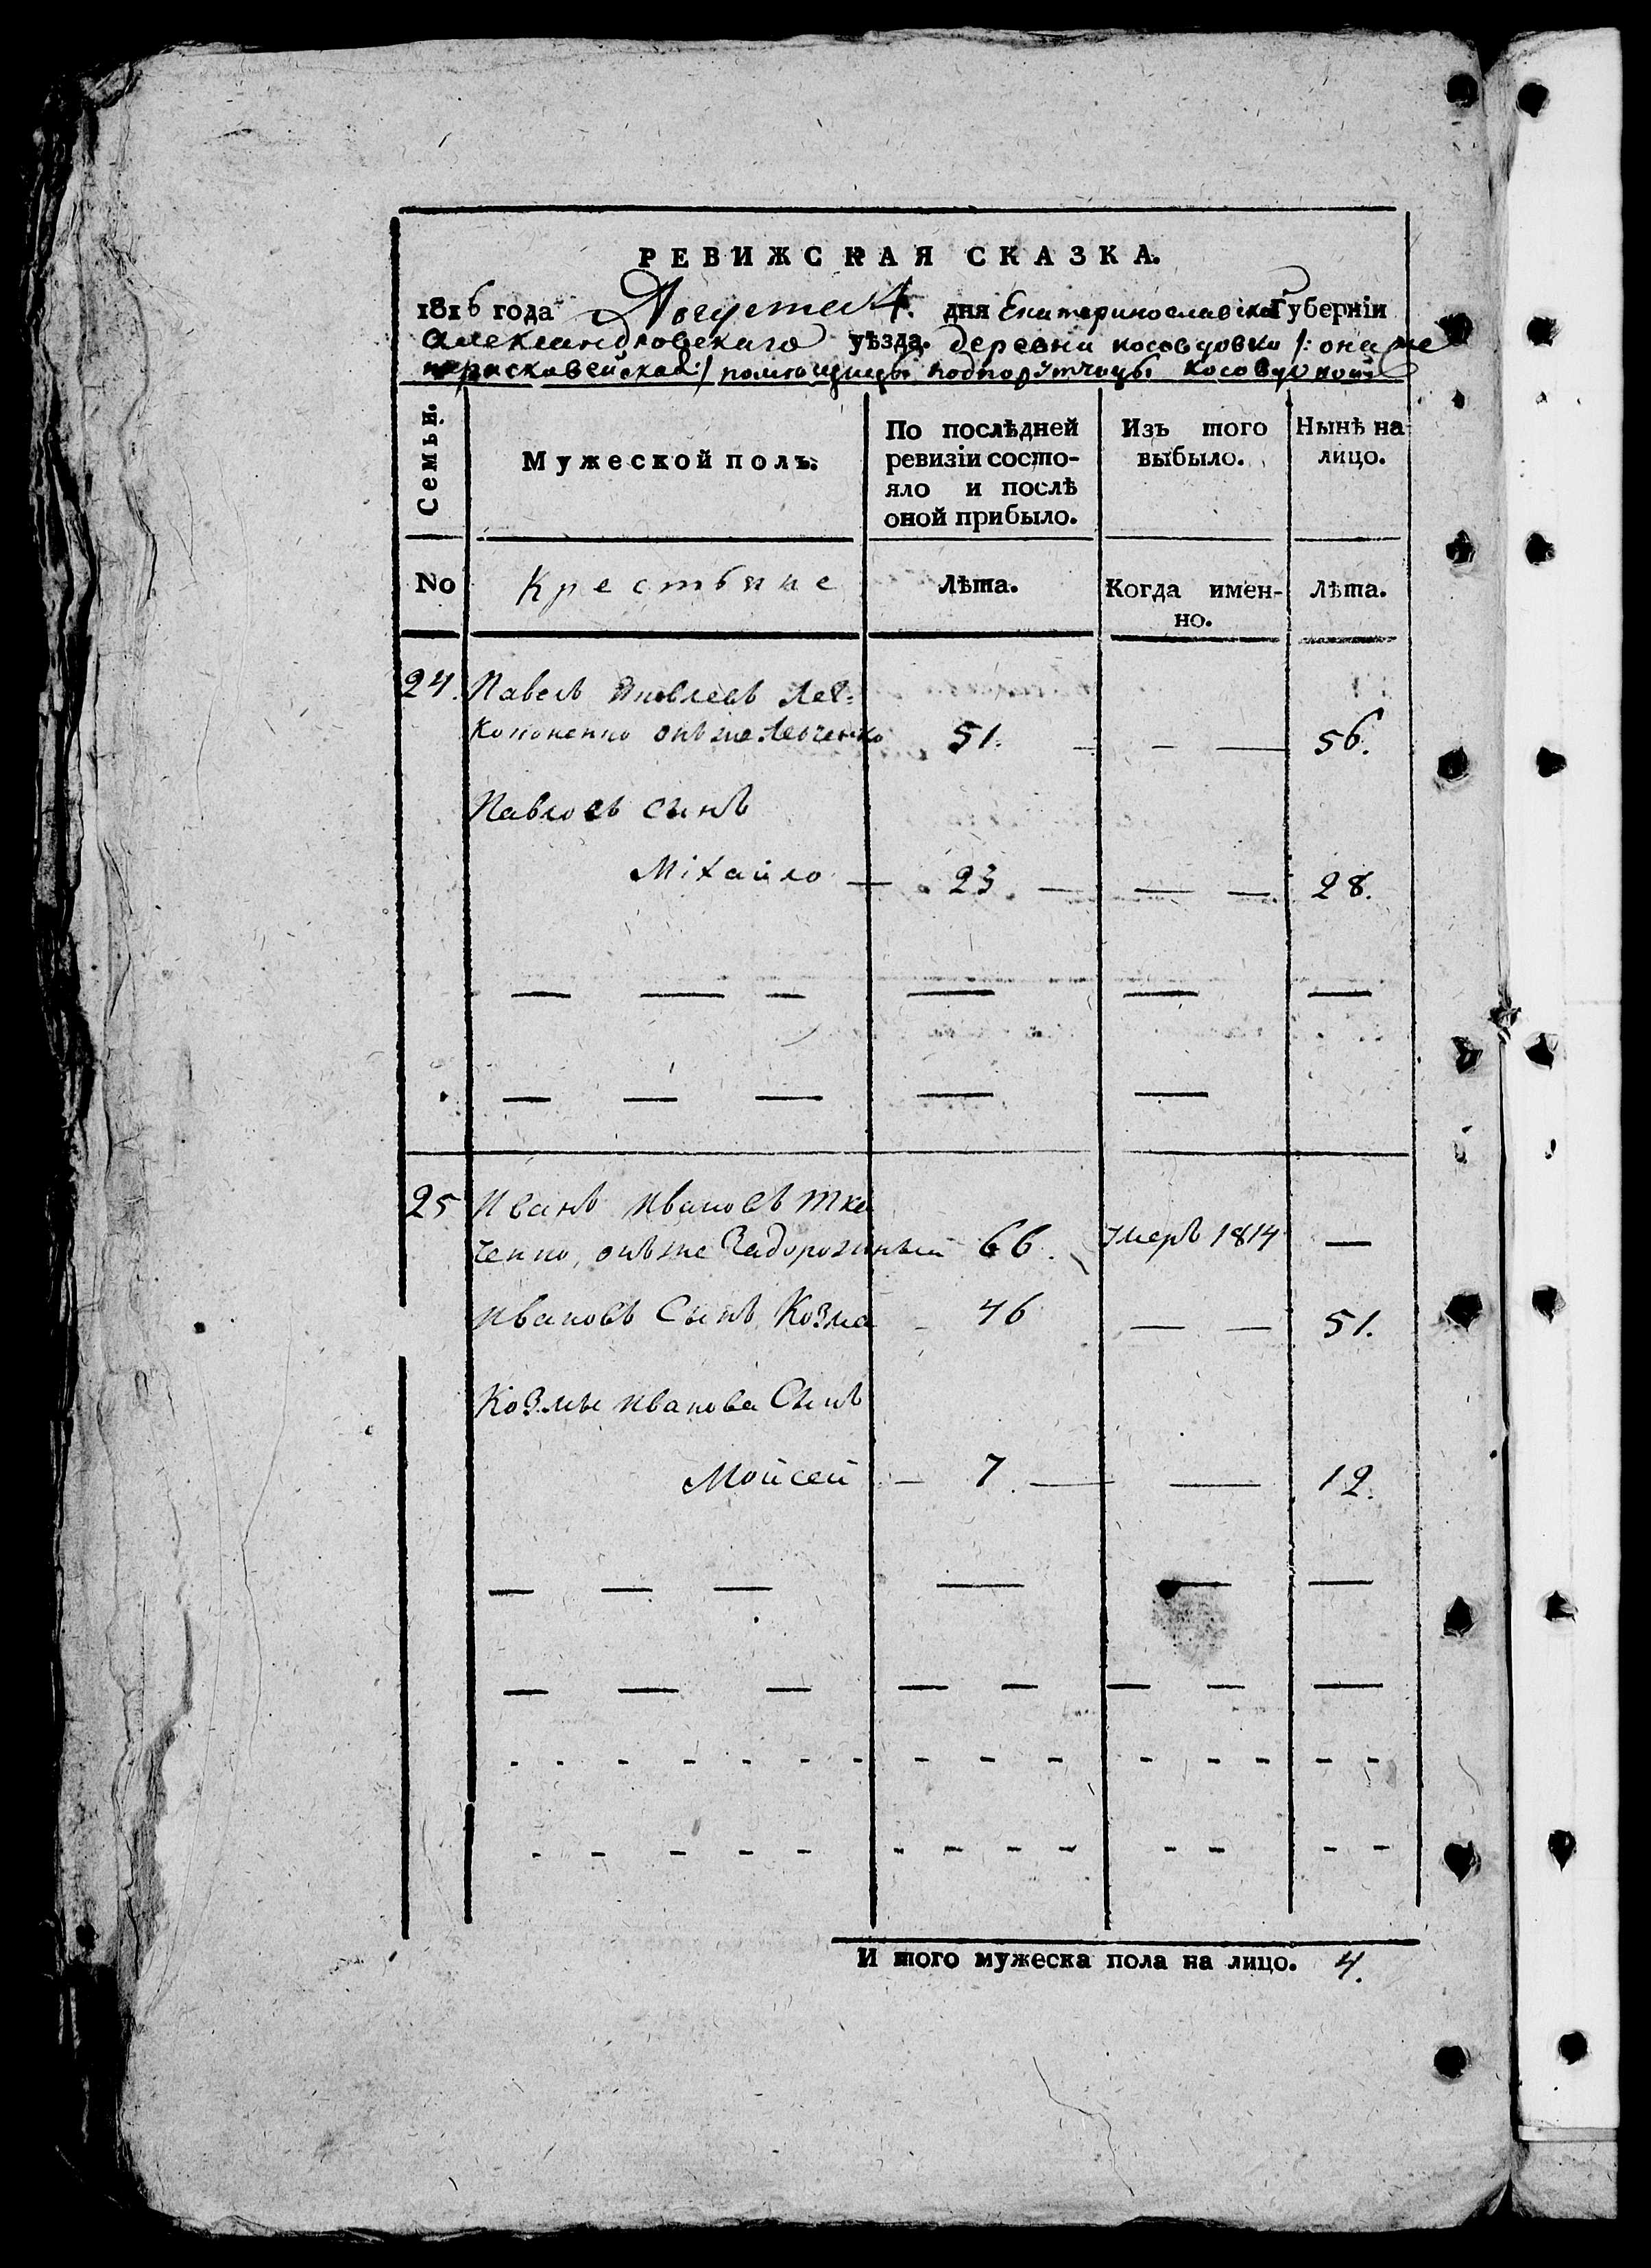 РЕВИЖСКАЯ СКАЗКА.
1816 года Августа 4. дня Екатеринославской Губерніи
Александровскаго уѣзда. деревни косовцовки /: она же
парасковейская :/ помѣщицы подпорутчицы Косовцовой
Семьи.
Мужеской полъ.
По послѣдней
ревизіи состо-
яло и послѣ
оной прибыло.
Изъ того
выбыло.
Нынѣ на
лицо.
No
Крестьяне
Лѣта.
Когда имен-
но.
Лѣта.
24. Павелъ Яковлевъ
онъ же Левченко 51. 56.
Павловъ сынъ
Міхайло 23 28.
25 Иванъ Ивановъ Тка
ченко, онъ же Задорожный 66. Умеръ 1814 —
Ивановъ Сынъ Козма 46 51.
Козмы Иванова Сынъ
Мойсей 7. 12.
И того мужеска пола на лицо. 4.